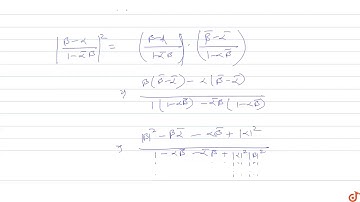 |β-α / 1-ᾱβ|² = (β-α / 1-ᾱβ) · (β̄-ᾱ / 1-αβ̄)
⇒ β(β̄-ᾱ) - α(β̄-ᾱ) / 1(1-αβ̄) - ᾱβ(1-αβ̄)
⇒ |β|² - βᾱ - αβ̄ + |α|² / 1 - αβ̄ - ᾱβ + |α|²|β|²